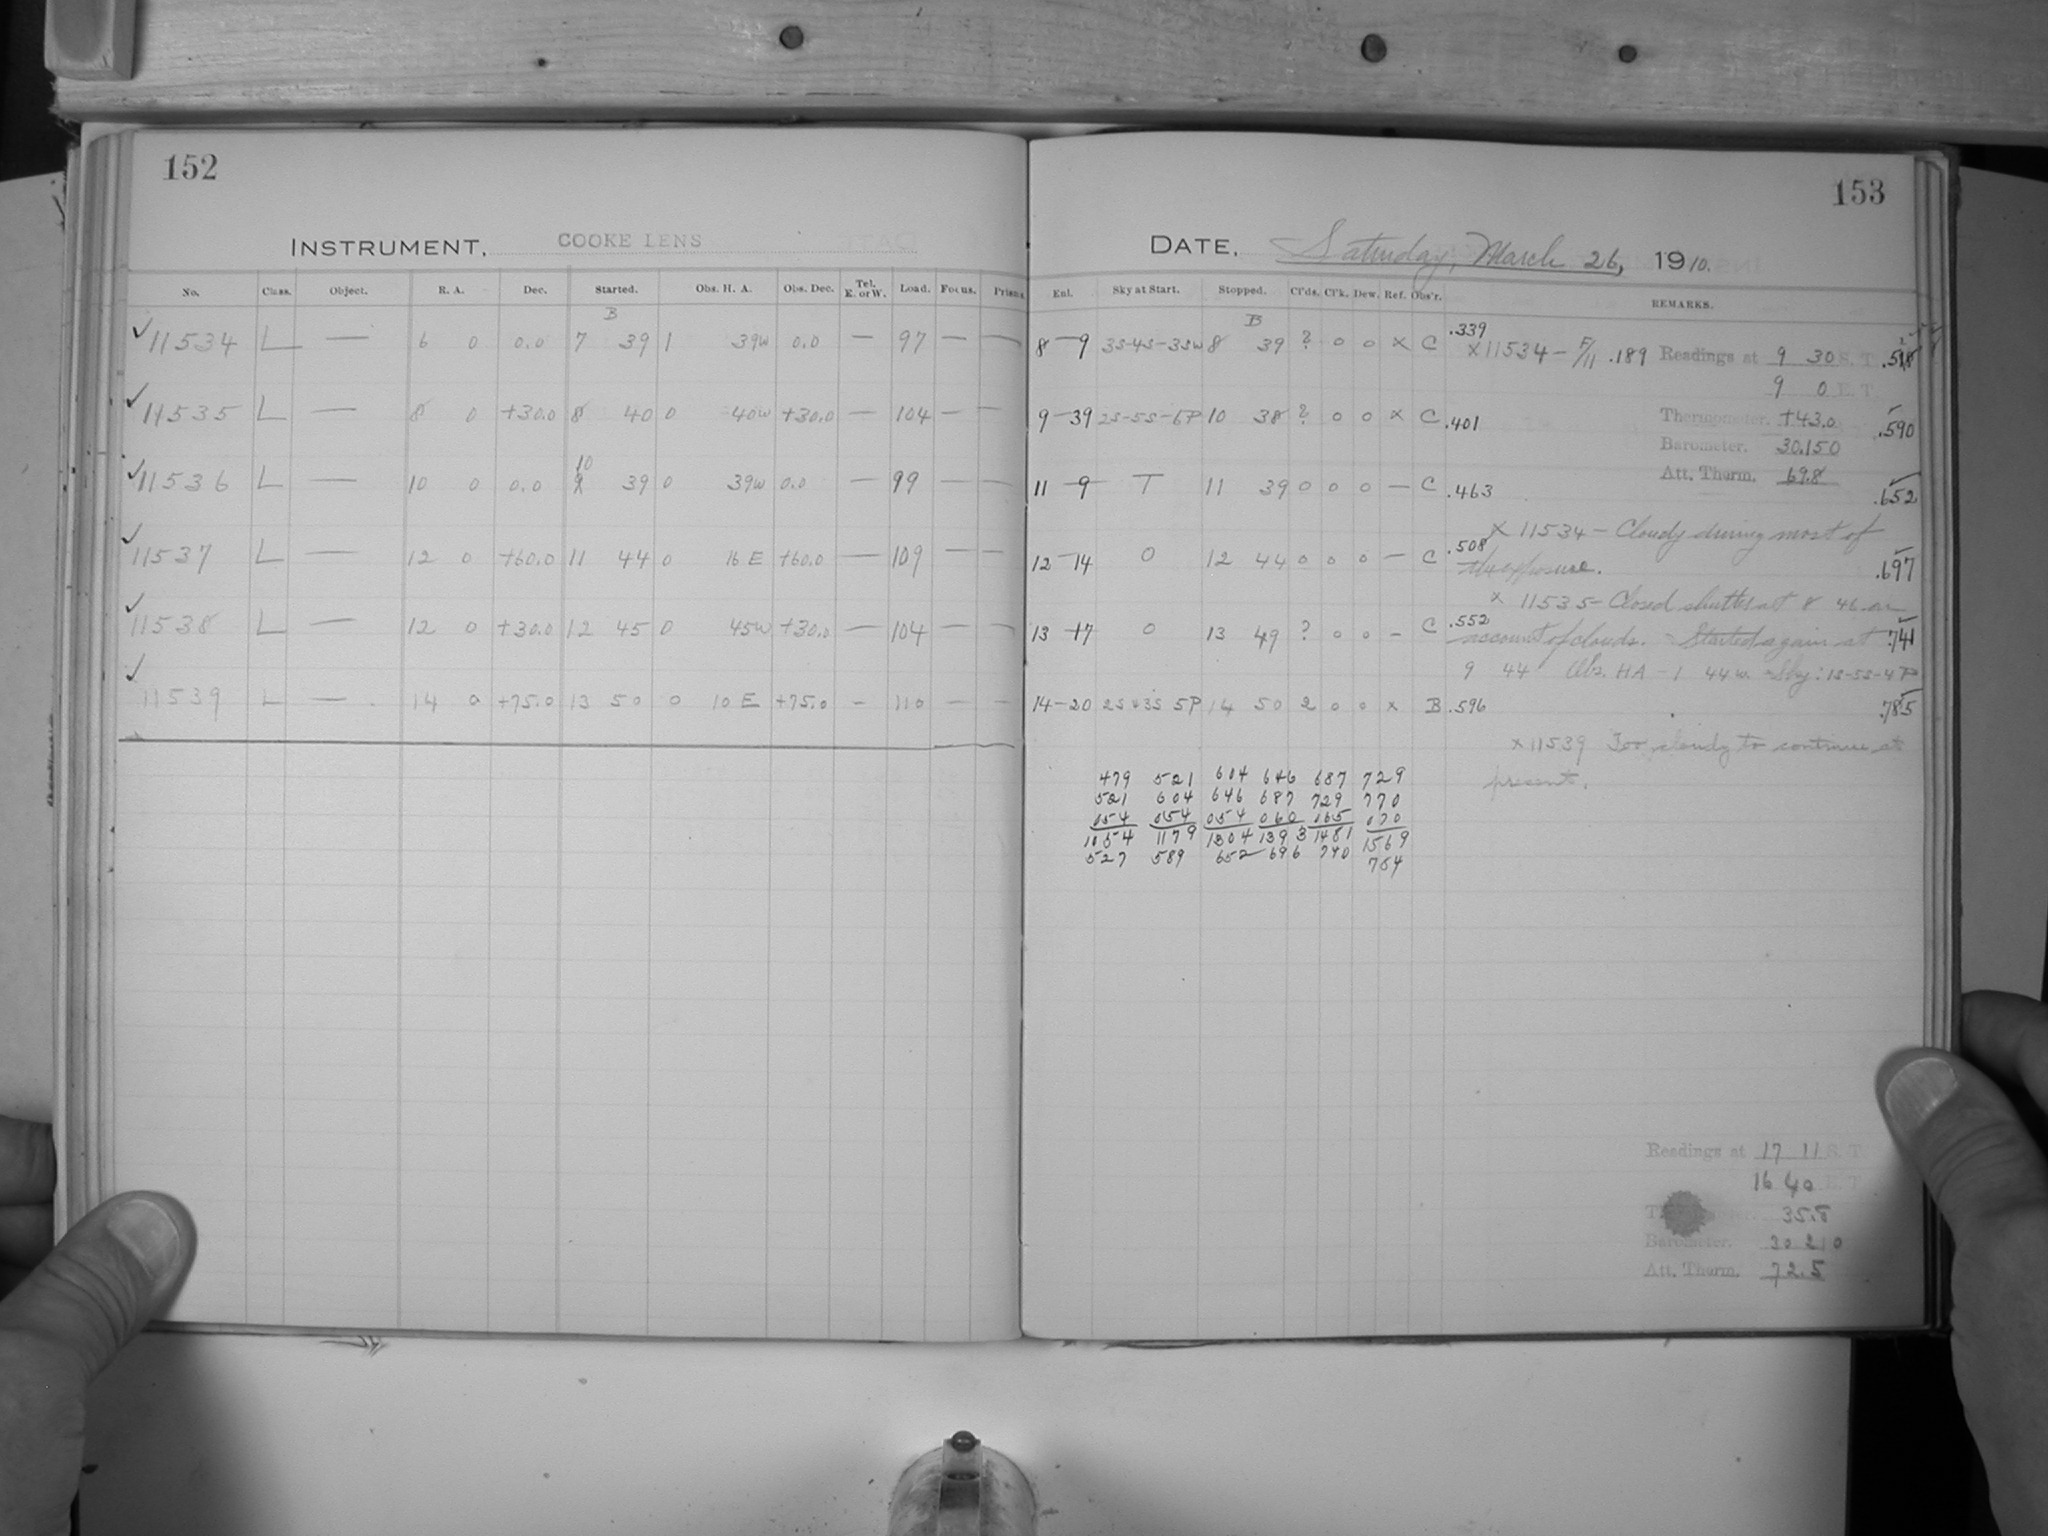 152
INSTRUMENT, COOKE LENS
No. Class. Object. R. A. Dec. Started. Obs. H. A. Obs. Dec. Tel. E. or W. Load. Focus. Prisms.
B
✓ 11534 L — 6 0 0.0 7 39 1 39W 0.0 — 97 — —
✓ 11535 L — 8 0 +30.0 8 40 0 40W +30.0 — 104 — —
✓ 11536 L — 10 0 0.0 10 39 0 39W 0.0 — 99 — —
✓ 11537 L — 12 0 +60.0 11 44 0 16 E +60.0 — 109 — —
✓ 11538 L — 12 0 +30.0 12 45 0 45W +30.0 — 104 — —
✓ 11539 L — 14 0 +75.0 13 50 0 10 E +75.0 — 110 — —
153
DATE, Saturday, March 26, 1910.
Enl. Sky at Start. Stopped. Cl'ds. Cl'k. Dew. Ref. Obs'r. REMARKS.
B
8-9 3S-4S-3SW 8 39 ? 0 0 x C .339
x 11534 — F/11 .189 Readings at 9 30 S. T.
9 0 E. T.
9-39 2S-5S-6P 10 38 ? 0 0 x C .401 Thermometer. +43.0 .590
Barometer. 30.150
Att. Therm. 69.8
11-9 T 11 39 0 0 0 — C .463 .652
x 11534 — Cloudy during most of
12-14 0 12 44 0 0 0 — C .508 the exposure. .697
x 11535 — Closed shutter at 8 46 on
13-17 0 13 49 ? 0 0 — C .552 account of clouds. Started again at .741
9 44 Obs. HA — 1 44 W. Sky: 1S-5S-4P
14-20 2S 3S 5P 14 50 2 0 0 x B .596 .785
x 11539 Too cloudy to continue at
present.
479 521 604 646 687 729
521 604 646 687 729 770
054 054 054 060 065 070
1054 1179 1304 1393 1481 1569
527 589 652 696 740 784
Readings at 17 11 S. T.
16 40 E. T.
35.8
Barometer. 30 210
Att. Therm. 72.5